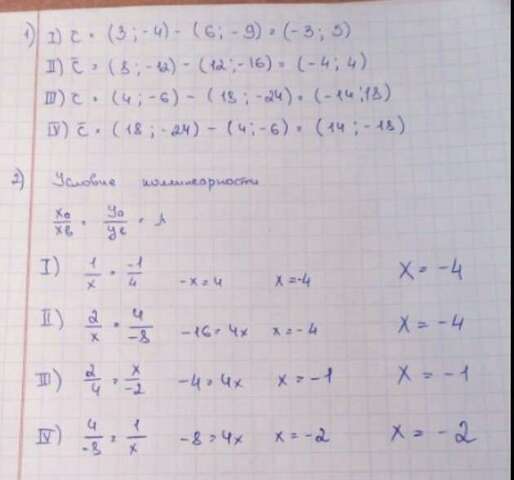 1) I) c̄ = (3 ; -4) - (6 ; -9) = (-3 ; 5)
II) c̄ = (8 ; -12) - (12 ; -16) = (-4 ; 4)
III) c̄ = (4 ; -6) - (18 ; -24) = (-14 ; 18)
IV) c̄ = (18 ; -24) - (4 ; -6) = (14 ; -18)
2) Условие коллинарности
xa/xb = ya/yb = λ
I) 1/x = -1/4 -x = 4 x = -4 x = -4
II) 2/x = 4/-8 -16 = 4x x = -4 x = -4
III) 2/4 = x/-2 -4 = 4x x = -1 x = -1
IV) 4/-8 = 1/x -8 = 4x x = -2 x = -2